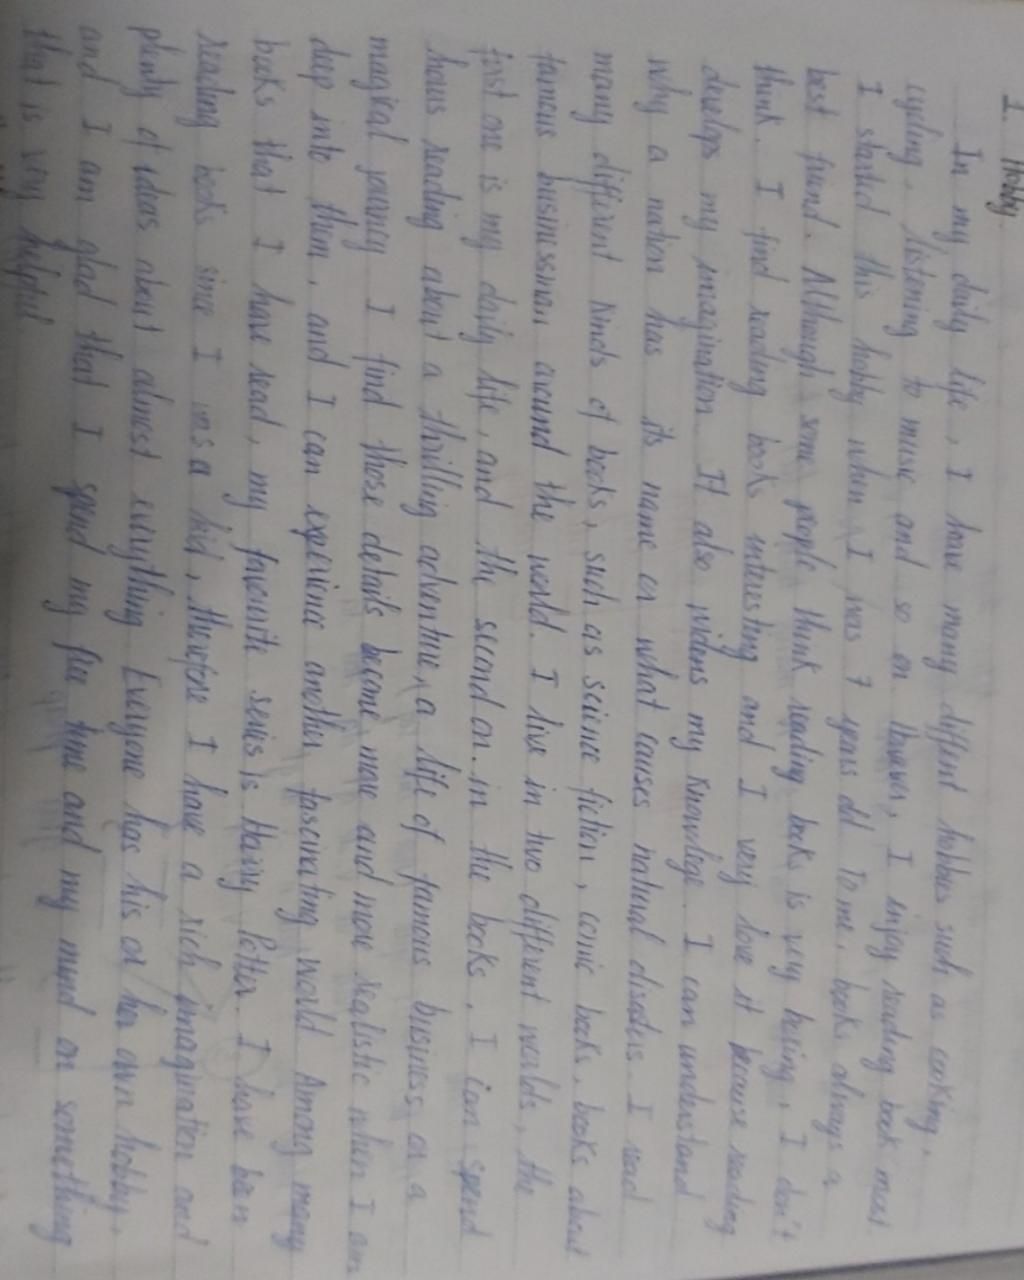 1. Hobby.
In my daily life, I have many diffent hobbies such as cooking,
cycling, listening to music and so on. However, I enjoy reading book most.
I started this hobby when I was 7 years old. To me, books always a
best friend. Although some people think reading books is very boring, I don't
think. I find reading books interesting and I very love it because reading
develops my imagination. It also widens my knowlege. I can understand
why a nation has its name or what causes natural disaders. I read
many different kinds of books, such as science fiction, comic books, books about
famous businessman around the world. I live in two different worlds, the
first one is my daily life, and the second on. in the books. I can spend
hours reading about a thrilling adventure, a life of famous business, or a
magical journey. I find those details become more and more realistic when I am
deep into them, and I can experience another fascinating world. Among many
books that I have read, my favourite series is Harry Potter. I have been
reading books since I was a kid, therefore I have a rich imagination and
plenty of ideas about almost everything. Everyone has his or her own hobby,
and I am glad that I spend my free time and my mind on something
that is very helpful